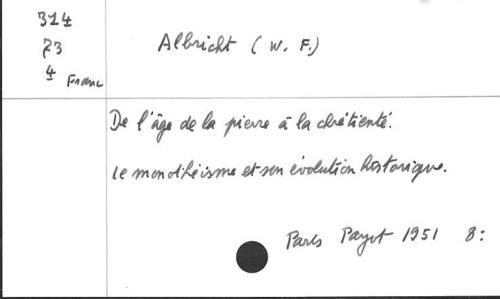 314
23
4 Franc
Albricht (W. F.)
De l'âge de la pierre à la chrétienté.
Le monothéisme et son évolution historique.
Paris Payot 1951 8: